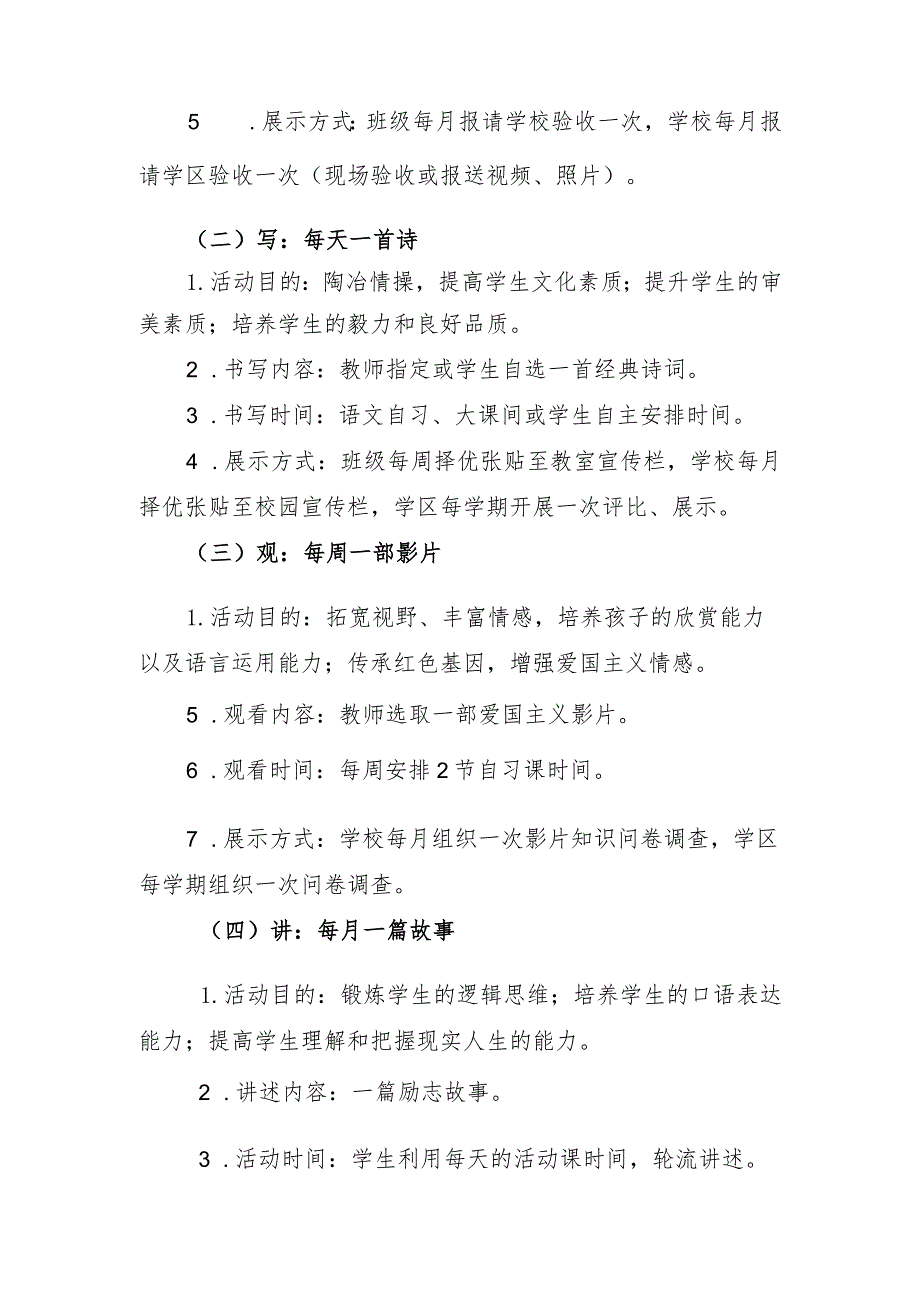 5 .展示方式：班级每月报请学校验收一次，学校每月报
请学区验收一次（现场验收或报送视频、照片）。
（二）写：每天一首诗
1.活动目的：陶冶情操，提高学生文化素质；提升学生的审
美素质；培养学生的毅力和良好品质。
2 .书写内容：教师指定或学生自选一首经典诗词。
3 .书写时间：语文自习、大课间或学生自主安排时间。
4 .展示方式：班级每周择优张贴至教室宣传栏，学校每月
择优张贴至校园宣传栏，学区每学期开展一次评比、展示。
（三）观：每周一部影片
1.活动目的：拓宽视野、丰富情感，培养孩子的欣赏能力
以及语言运用能力；传承红色基因，增强爱国主义情感。
5 .观看内容：教师选取一部爱国主义影片。
6 .观看时间：每周安排2节自习课时间。
7 .展示方式：学校每月组织一次影片知识问卷调查，学区
每学期组织一次问卷调查。
（四）讲：每月一篇故事
1.活动目的：锻炼学生的逻辑思维；培养学生的口语表达
能力；提高学生理解和把握现实人生的能力。
2 .讲述内容：一篇励志故事。
3 .活动时间：学生利用每天的活动课时间，轮流讲述。